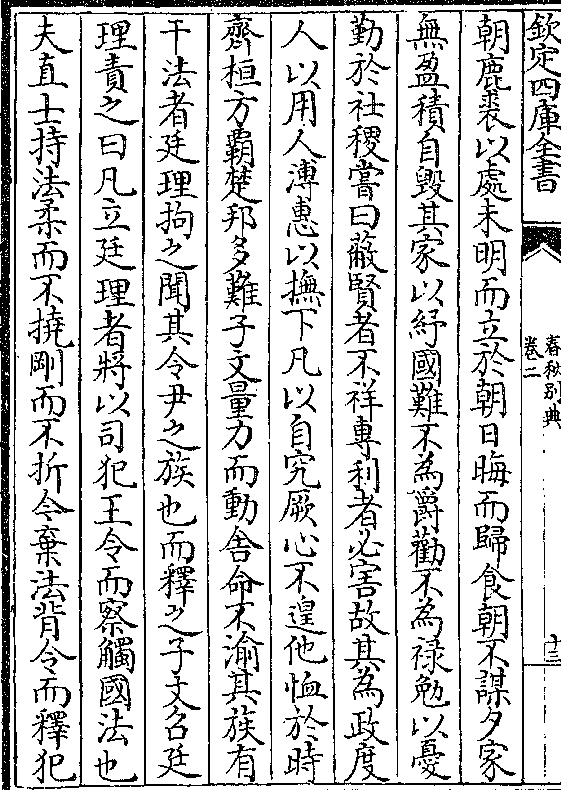 欽定四庫全書
春秋别典
卷二
十三
朝鹿裘以處未明而立於朝日晦而歸食朝不謀夕家
無盈積自毀其家以紓國難不為爵勸不為禄勉以憂
勤於社稷嘗曰蔽賢者不祥專利者必害故其為政度
人以用人溥惠以撫下凡以自究厥心不遑他恤於時
齊桓方霸楚邦多難子文量力而動舍命不渝其族有
干法者廷理拘之聞其令尹之族也而釋之子文召廷
理責之曰凡立廷理者將以司犯王令而察觸國法也
夫直士持法柔而不撓剛而不折令棄法背令而釋犯